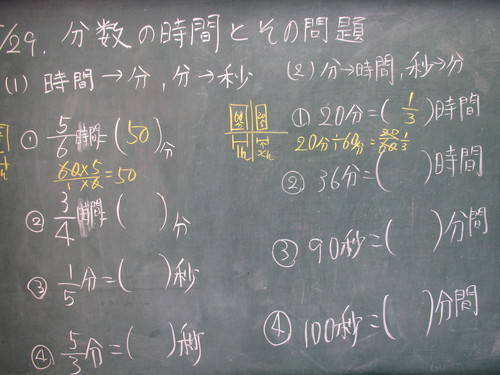 /29. 分数の時間とその問題
(1) 時間→分, 分→秒
① 5/6 時間=(50)分
60×5/1×6=50
② 3/4 時間=( )分
③ 1/5 分=( )秒
④ 5/3 分=( )秒
(2) 分→時間, 秒→分
① 20分=(1/3)時間
20分÷60分=20/60=1/3
② 36分=( )時間
③ 90秒=( )分間
④ 100秒=( )分間